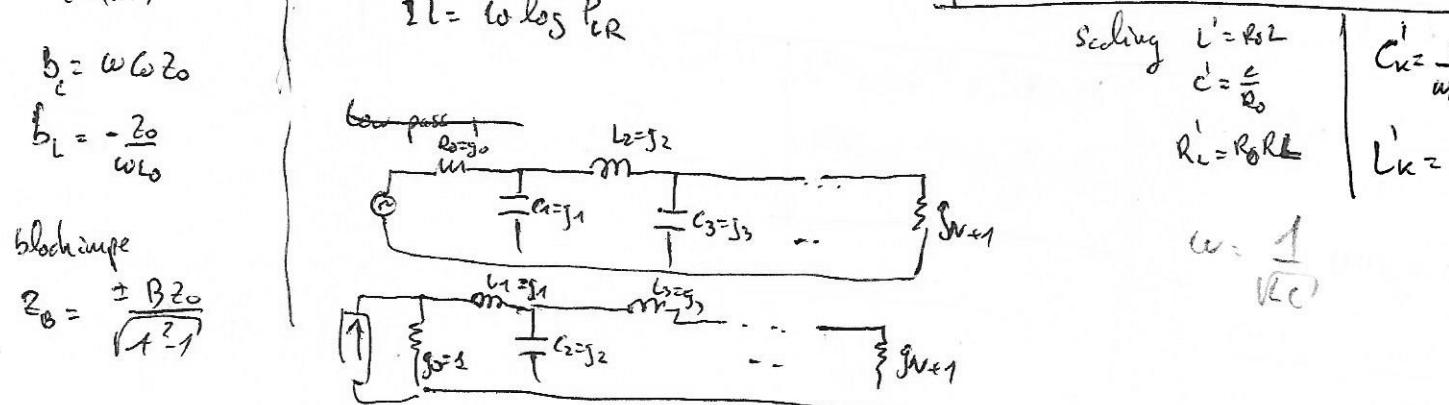 B_c = ωC_0 Z_0
b_L = - Z_0 / ωL_0
Z_B = ± B Z_0 / √(A²-1)
IL = 10 log P_LR
Low pass
R_0=g_0
L_2=g_2
C_1=g_1
C_3=g_3
...
g_N+1
L_1=g_1
L_3=g_3
g_0=1
C_2=g_2
...
g_N+1
Scaling L' = R_0 L
C' = C / R_0
R_L' = R_0 R_L
C'_K =
L'_K =
ω = 1 / √LC